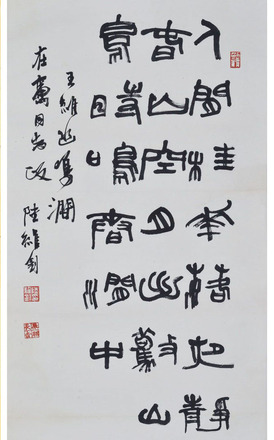 人閒桂華落夜靜
春山空月出驚山
鳥時鳴春澗中
王維鳥鳴澗
同志政 陸維釗